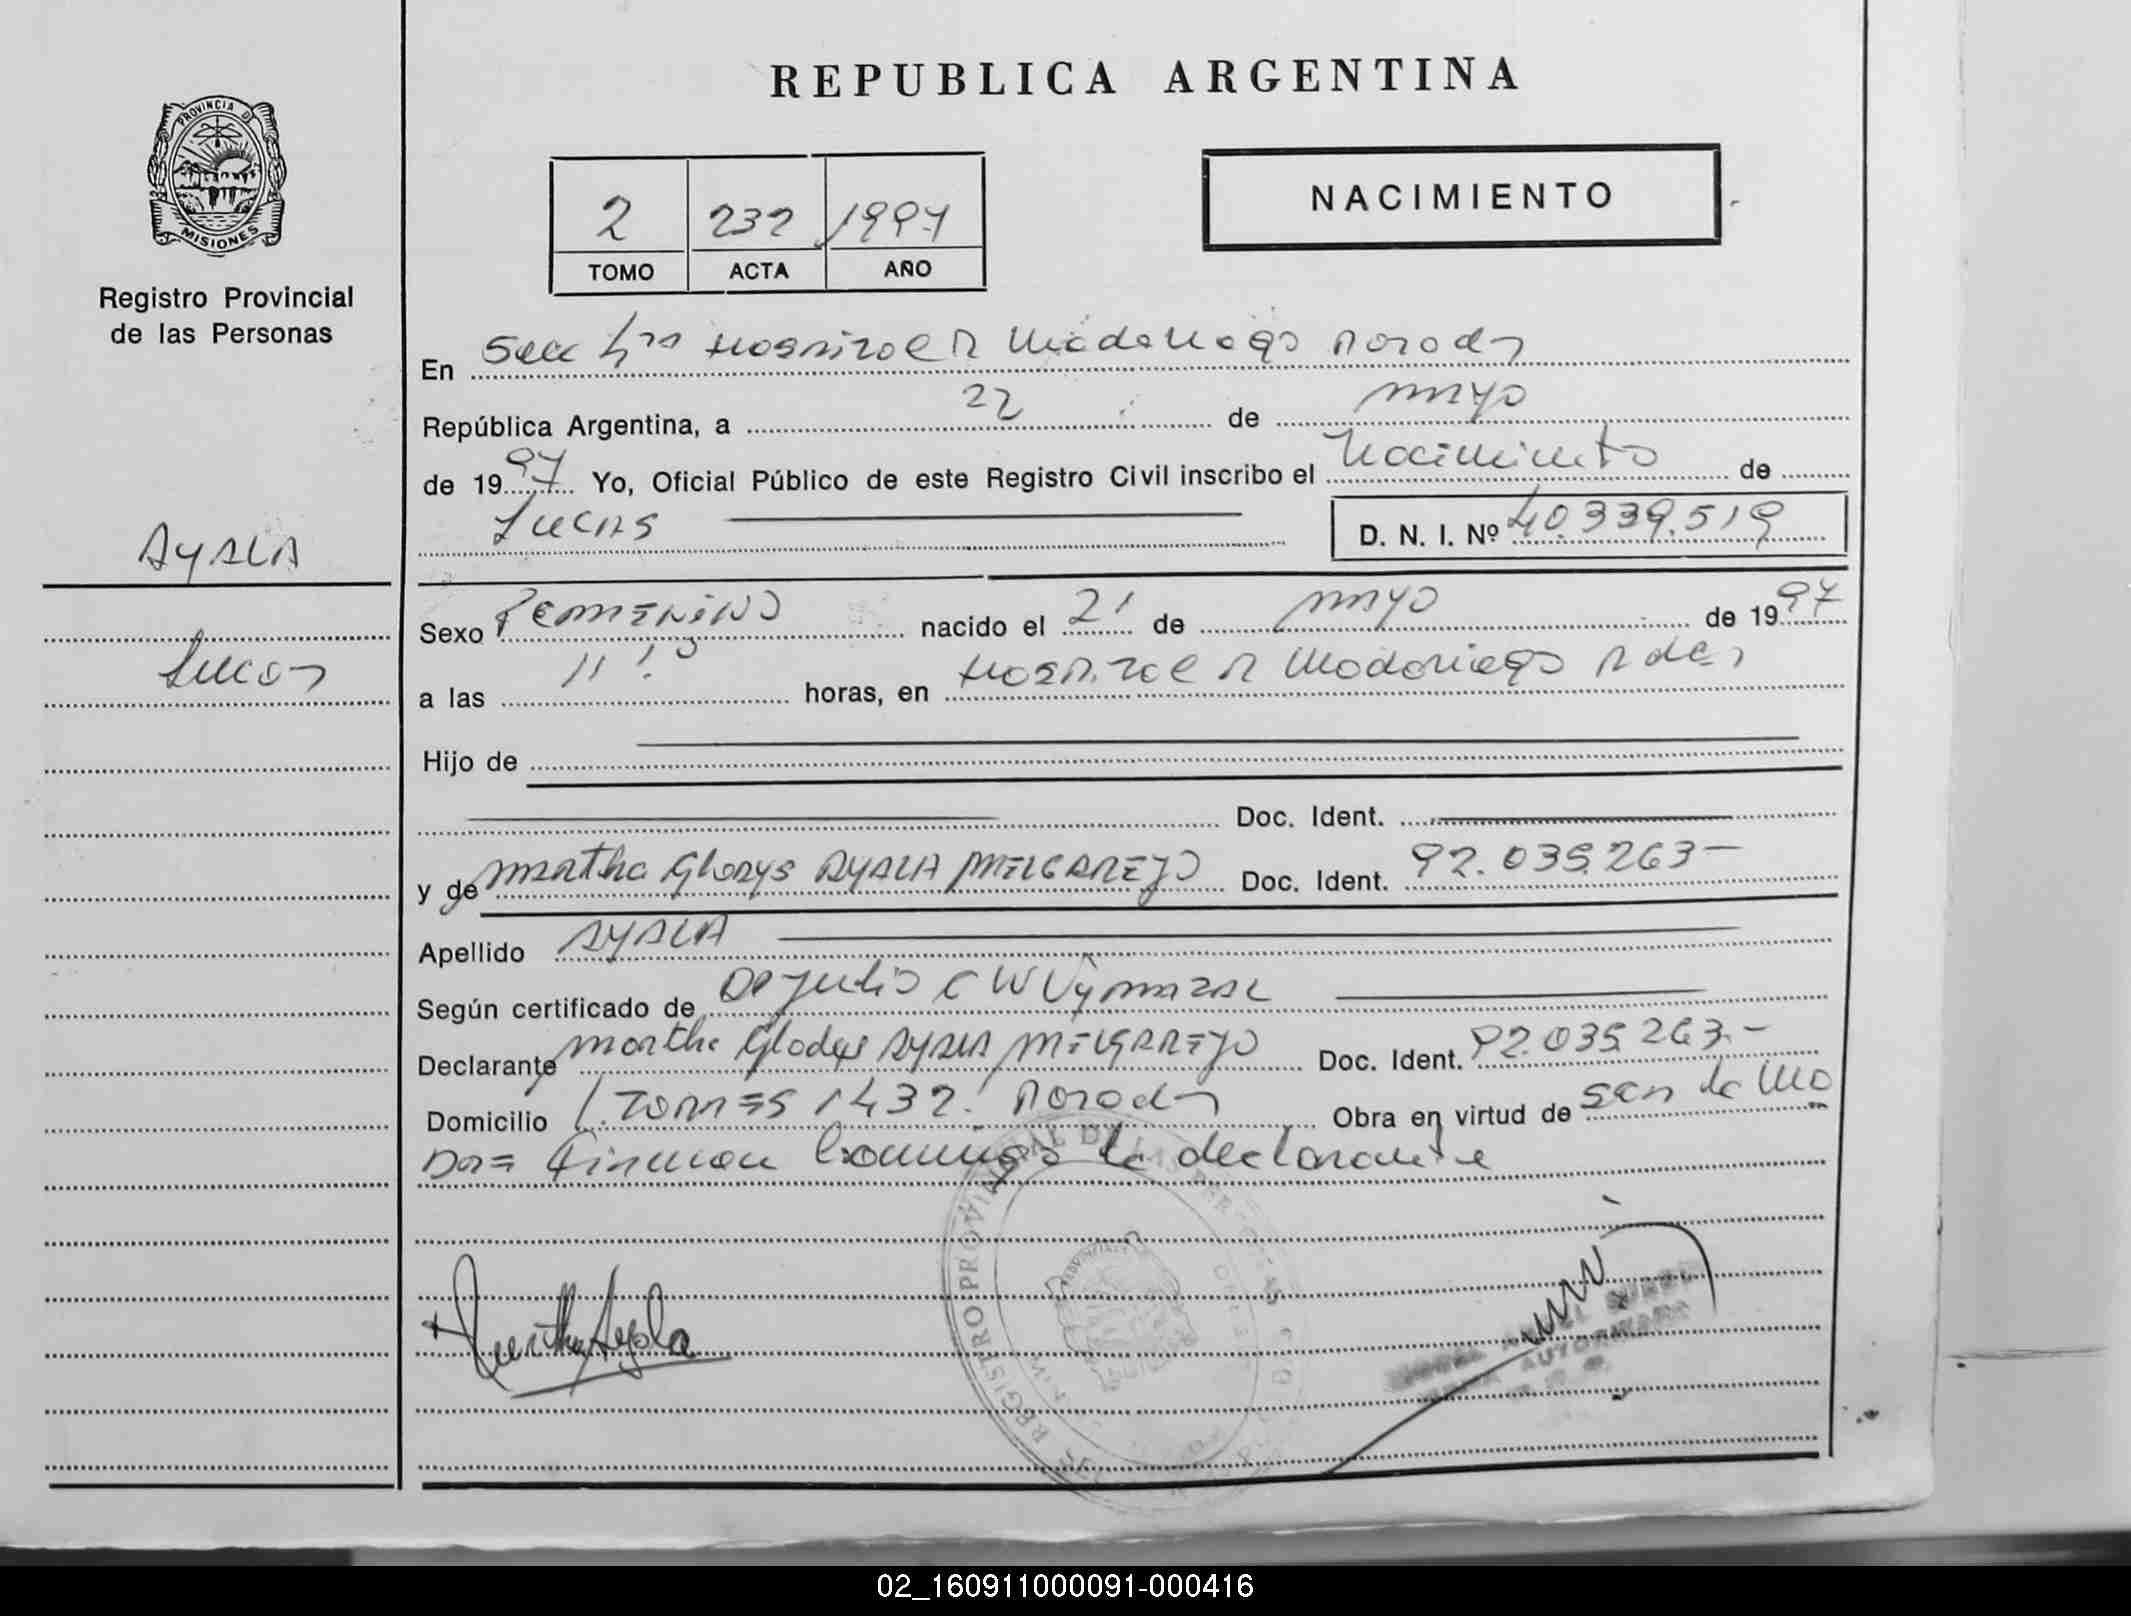 REPUBLICA ARGENTINA
PROVINCIA D
MISIONES
Registro Provincial
de las Personas
2 232 1997
TOMO ACTA AÑO
NACIMIENTO
En Secc Madariaga Posadas
República Argentina, a 22 de mayo
de 1997 Yo, Oficial Público de este Registro Civil inscribo el Nacimiento de
Lucas
D. N. I. Nº 40.339.519
AYALA
Lucas
Sexo Femenino nacido el 21 de mayo de 1997
a las 11 horas, en Hospital R Madariaga Pdas
Hijo de
Doc. Ident.
y de Martha Gladys AYALA MELGAREJO Doc. Ident. 92.035.263-
Apellido AYALA
Según certificado de Dr Julio C W
Declarante Martha Gladys AYALA MELGAREJO Doc. Ident. 92.035.263.-
Domicilio L. TORRES 1432. Posadas Obra en virtud de ser la Ma
Dre firman conmigo la declarante
REGISTRO PROVINCIAL DE LAS PER
Martha Ayala
AUTORIZADA
02_160911000091-000416